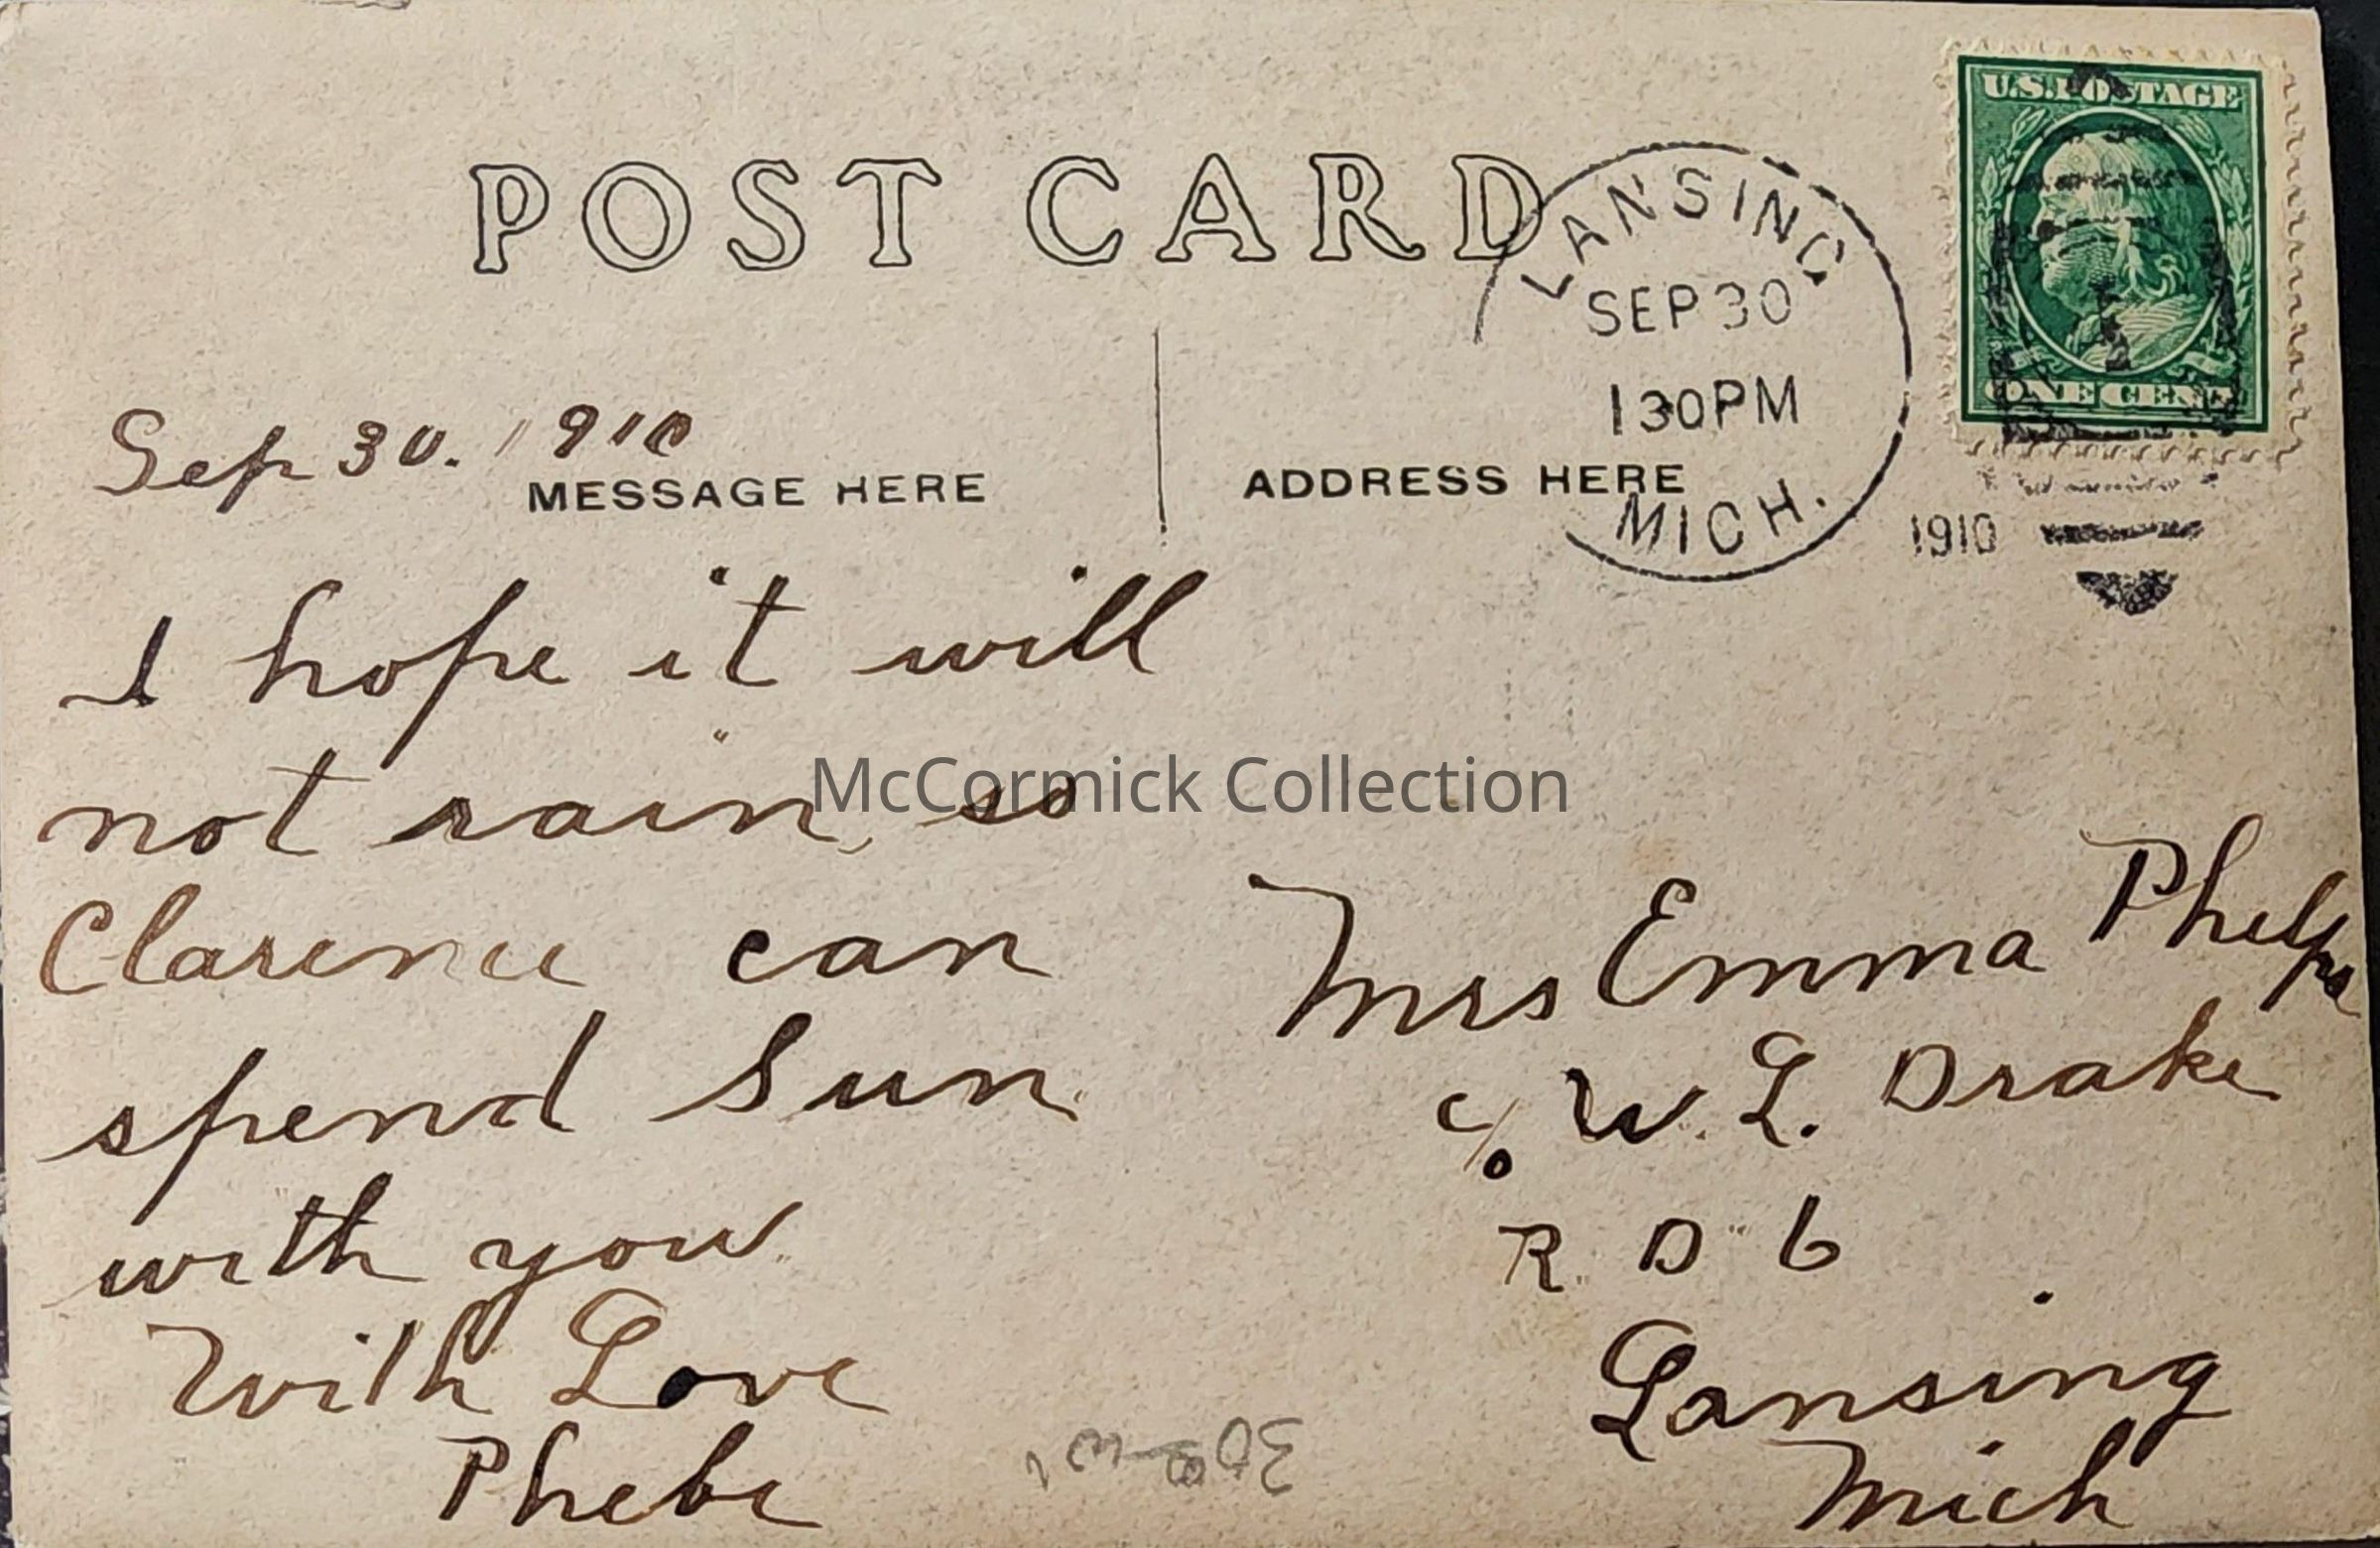 POST CARD
LANSING
SEP 30
130PM
MICH.
1910
U.S. POSTAGE
ONE CENT
Sep 30. 1910
MESSAGE HERE
ADDRESS HERE
I hope it will
not rain, so
Clarence can
spend Sun.
with you.
With Love
Phebe
McCormick Collection
Mrs Emma Phelps
c/o W. L. Drake
R. D. 6
Lansing
Mich